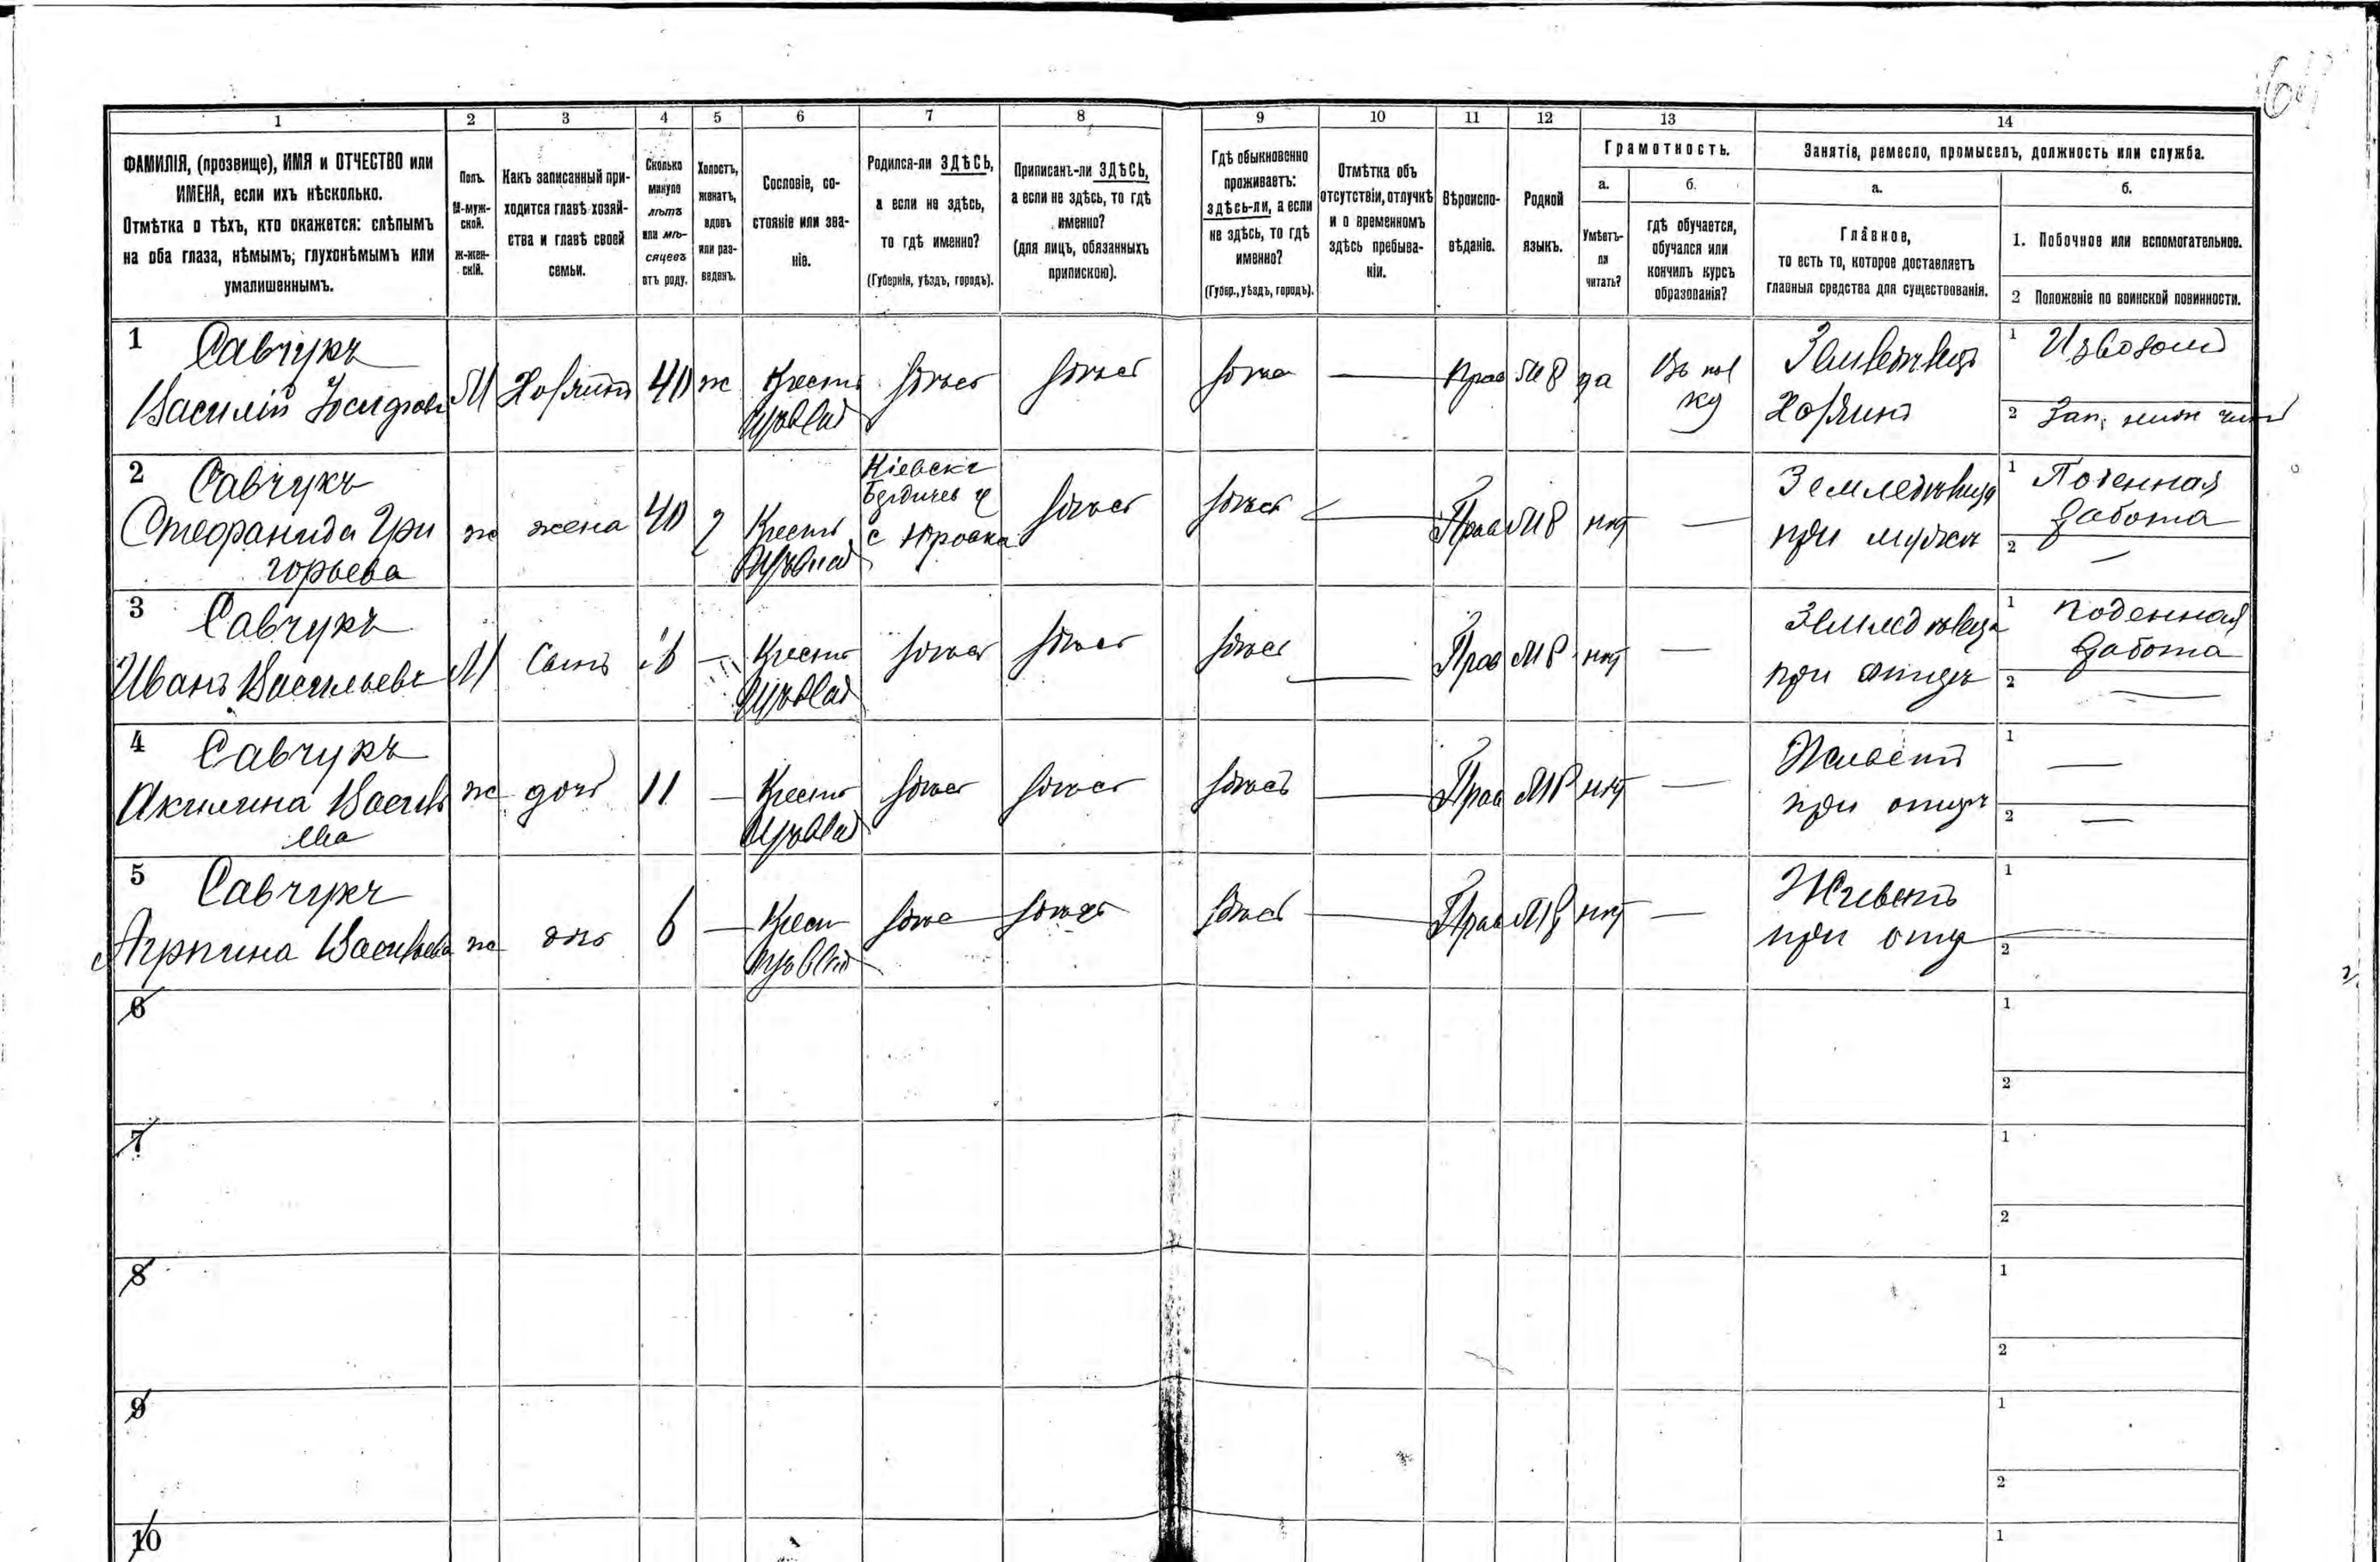 64
1 2 3 4 5 6 7 8 9 10 11 12 13 14
ФАМИЛІЯ, (прозвище), ИМЯ и ОТЧЕСТВО или
ИМЕНА, если ихъ нѣсколько.
Отмѣтка о тѣхъ, кто окажется: слѣпымъ
на оба глаза, нѣмымъ; глухонѣмымъ или
умалишеннымъ.
Полъ.
М-муж-
ской.
ж-жен-
скій.
Какъ записанный при-
ходится главѣ хозяй-
ства и главѣ своей
семьи.
Сколько
минуло
лѣтъ
или мѣ-
сяцевъ
отъ роду.
Холостъ,
женатъ,
вдовъ
или раз-
веденъ.
Сословіе, со-
стояніе или зва-
ніе.
Родился-ли ЗДѢСЬ,
а если не здѣсь,
то гдѣ именно?
(Губернія, уѣздъ, городъ).
Приписанъ-ли ЗДѢСЬ,
а если не здѣсь, то гдѣ
именно?
(для лицъ, обязанныхъ
припискою).
Гдѣ обыкновенно
проживаетъ:
здѣсь-ли, а если
не здѣсь, то гдѣ
именно?
(Губер., уѣздъ, городъ).
Отмѣтка объ
отсутствіи, отлучкѣ
и о временномъ
здѣсь пребыва-
ніи.
Вѣроиспо-
вѣданіе.
Родной
языкъ.
Грамотность.
а.
Умѣетъ-
ли
читать?
б.
гдѣ обучается,
обучался или
кончилъ курсъ
образованія?
Занятія, ремесло, промыселъ, должность или служба.
а.
Главное,
то есть то, которое доставляетъ
главныя средства для существованія.
б.
1. Побочное или вспомогательное.
2 Положеніе по воинской повинности.
1 Савчукъ
Василій Іосифовъ
М Хозяинъ 40 ж Крест
здѣсь здѣсь здѣсь — Прав МР да
Въ пол
ку
Хозяинъ
1 Извозом
2 Зап. нижн чинъ
2 Савчукъ
Стефанида Гри
горьева
ж жена 40 Крест
Кіевск
Бердичев у
с Юровка
здѣсь здѣсь — Прав МР нѣт —
Земледѣлица
при мужѣ
1 Поденная
работа
2 —
3 Савчукъ
Иванъ Васильевъ
М Сынъ 16 — Крест
здѣсь здѣсь здѣсь — Прав МР нѣт —
при отцѣ
1 поденная
работа
2 —
4 Савчукъ
Акилина Василь
ева
ж дочь 11 — Крест
здѣсь здѣсь здѣсь — Прав МР нѣт —
Живетъ
при отцѣ
1 —
2 —
5 Савчукъ
Агрпина Васильева
ж дочь 6 — Крест
здѣсь здѣсь здѣсь — Прав МР нѣт —
Живетъ
при отц
1
2
6
1
2
7
1
2
8
1
2
9
1
2
10
1